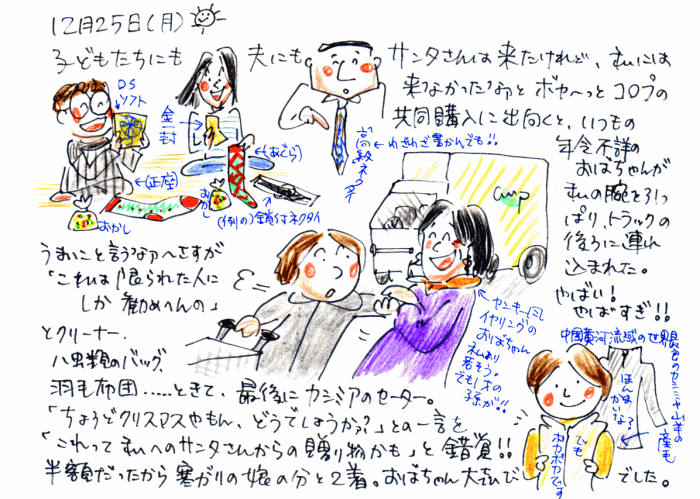 12月25日(月)
子どもたちにも 夫にも サンタさんは来たけれど、私には
来なかったなァとボヤ〜っとコロプの
共同購入に出向くと、いつもの
年令不詳の
おばちゃんが
私の腕を引っ
ぱり、トラックの
後ろに連れ
込まれた。
やばい!
やばすぎ!!
DS
ソフト
金一封
←(あぐら)
←(正座)
おかし
おかし
(例の)鎖付ネクタイ
高級ネクタイ
←わざわざ書かんでも!!
coop
うまいこと言うなァ〜さすが
「これは「限られた人に
しか勧めへんの」
とクリーナー、
ハ虫類のバッグ、
羽毛布団……ときて、最後にカシミアのセーター。
「ちょうどクリスマスやもん、どうでしょうかっ?」との一言を
「これって私へのサンタさんからの贈り物かも」と錯覚!!
半額だったから寒がりの娘の分と2着。おばちゃん大喜び でした。
←ヤンキーにし
イヤリングの
おばちゃん
私より
若そう。
でも1才の
孫が!!
中国黄河流域の世界最高のカシミヤ山羊の
産毛
ほんま
かいな?
でも
ホカホカです